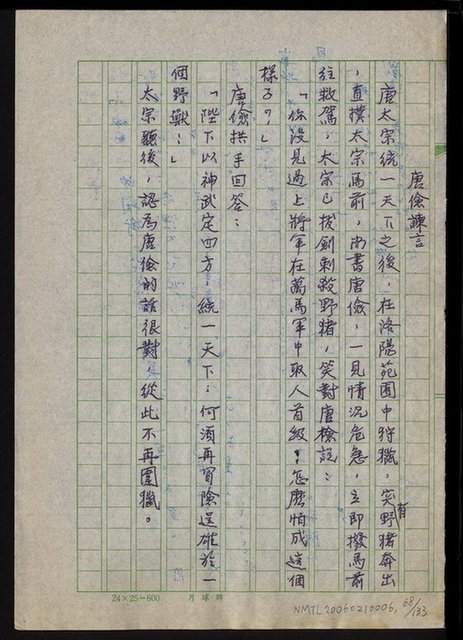 唐儉諫言
唐太宗統一天下之後，在洛陽苑囿中狩獵，突有野猪奔出
，直撲太宗馬前，尚書唐儉，一見情況危急，立即撥馬前
往救駕，太宗已拔劍刺殺野猪，笑對唐儉說：
「你沒見過上將軍在萬馬軍中取人首級，怎麽怕成這個
樣子？」
唐儉拱手回答：
「陛下以神武定四方，統一天下；何須再冒險逞雄於一
個野獸？」
太宗聽後，認爲唐儉的話很對，從此不再圍獵。
24×25=600 月球牌
NMTL20060210006, 68/133